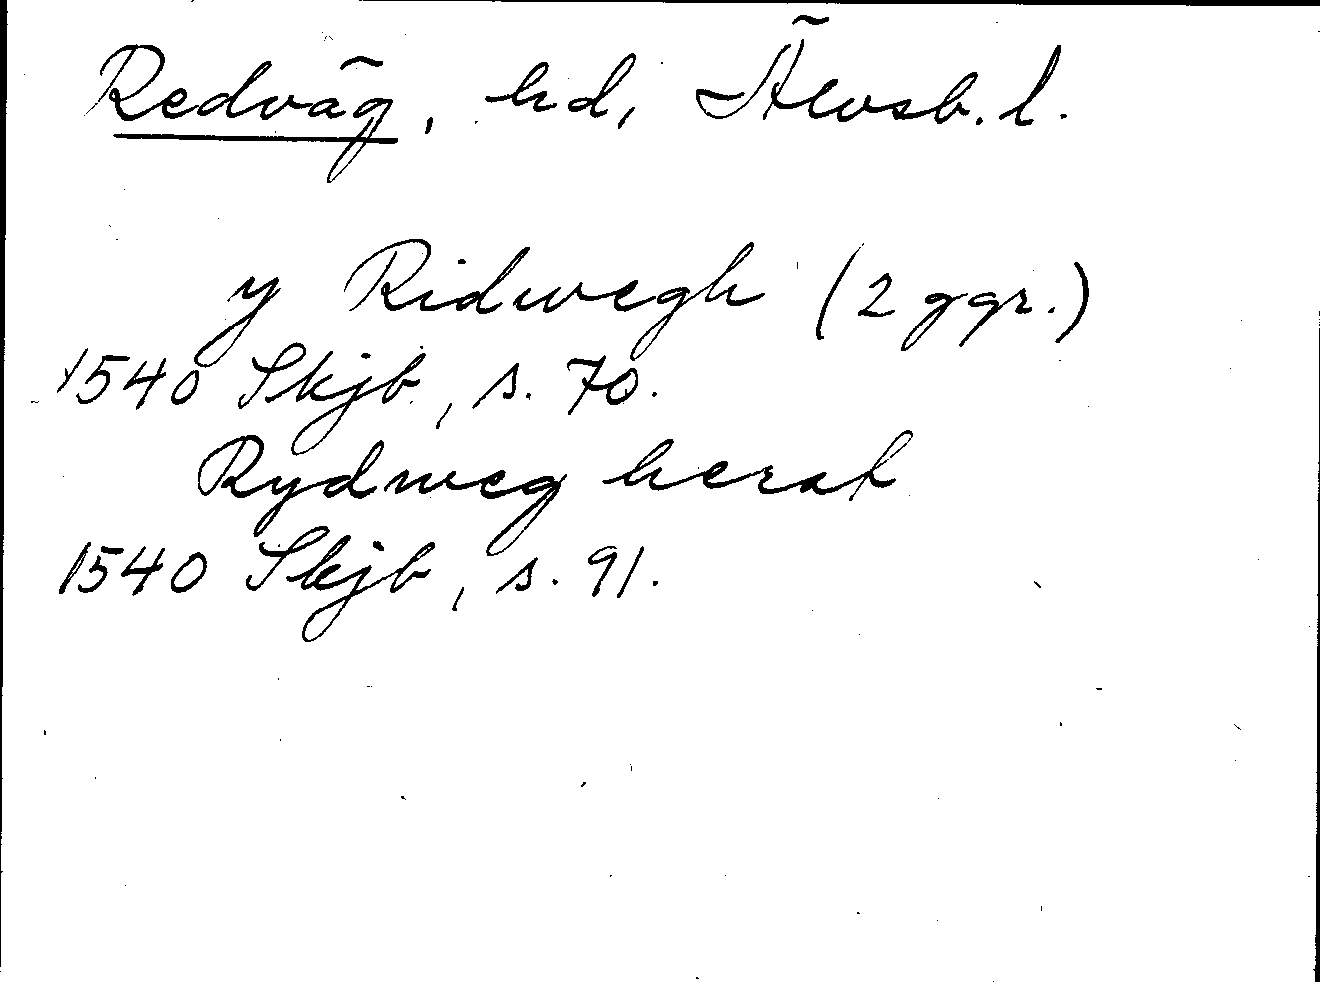 Redväg, hd, Älvsb. l.
y Ridwegh (2 ggr.)
1540 Skjb, s. 70.
Rydweg herat
1540 Skjb, s. 91.